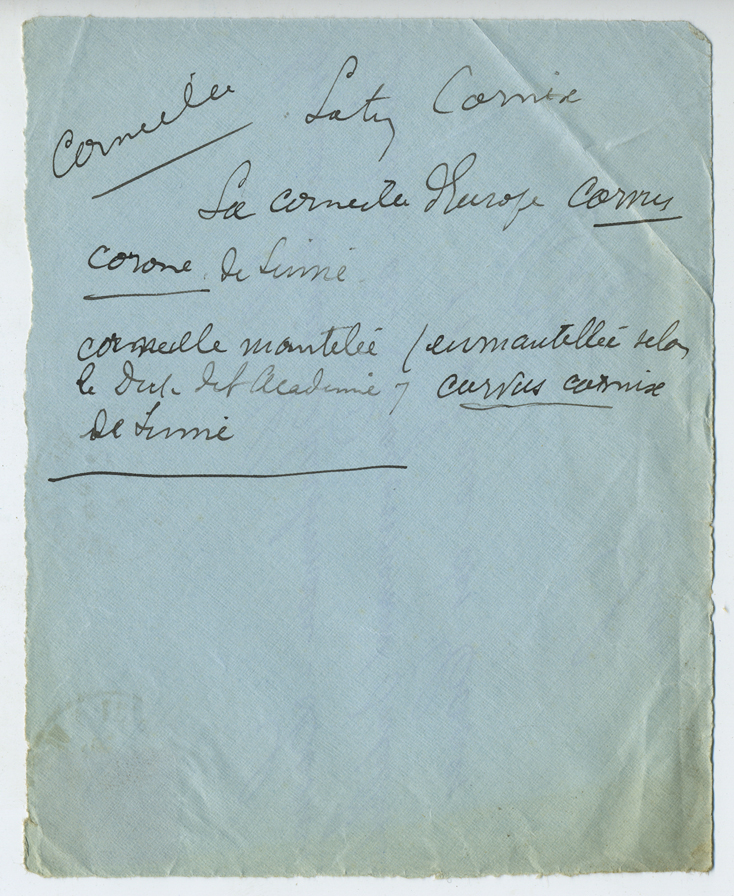 Corneille Latin Cornix
La corneille d'Europe Corvus
corone de Linné
corneille mantelée (emmantellée selon
le Dict. de l'Académie) corvus cornix
de Linné